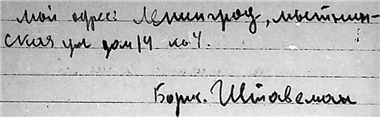 мой адрес: Ленинград, мытнин-
ская ул дом 14 кв 4.
Борис. Штавеман